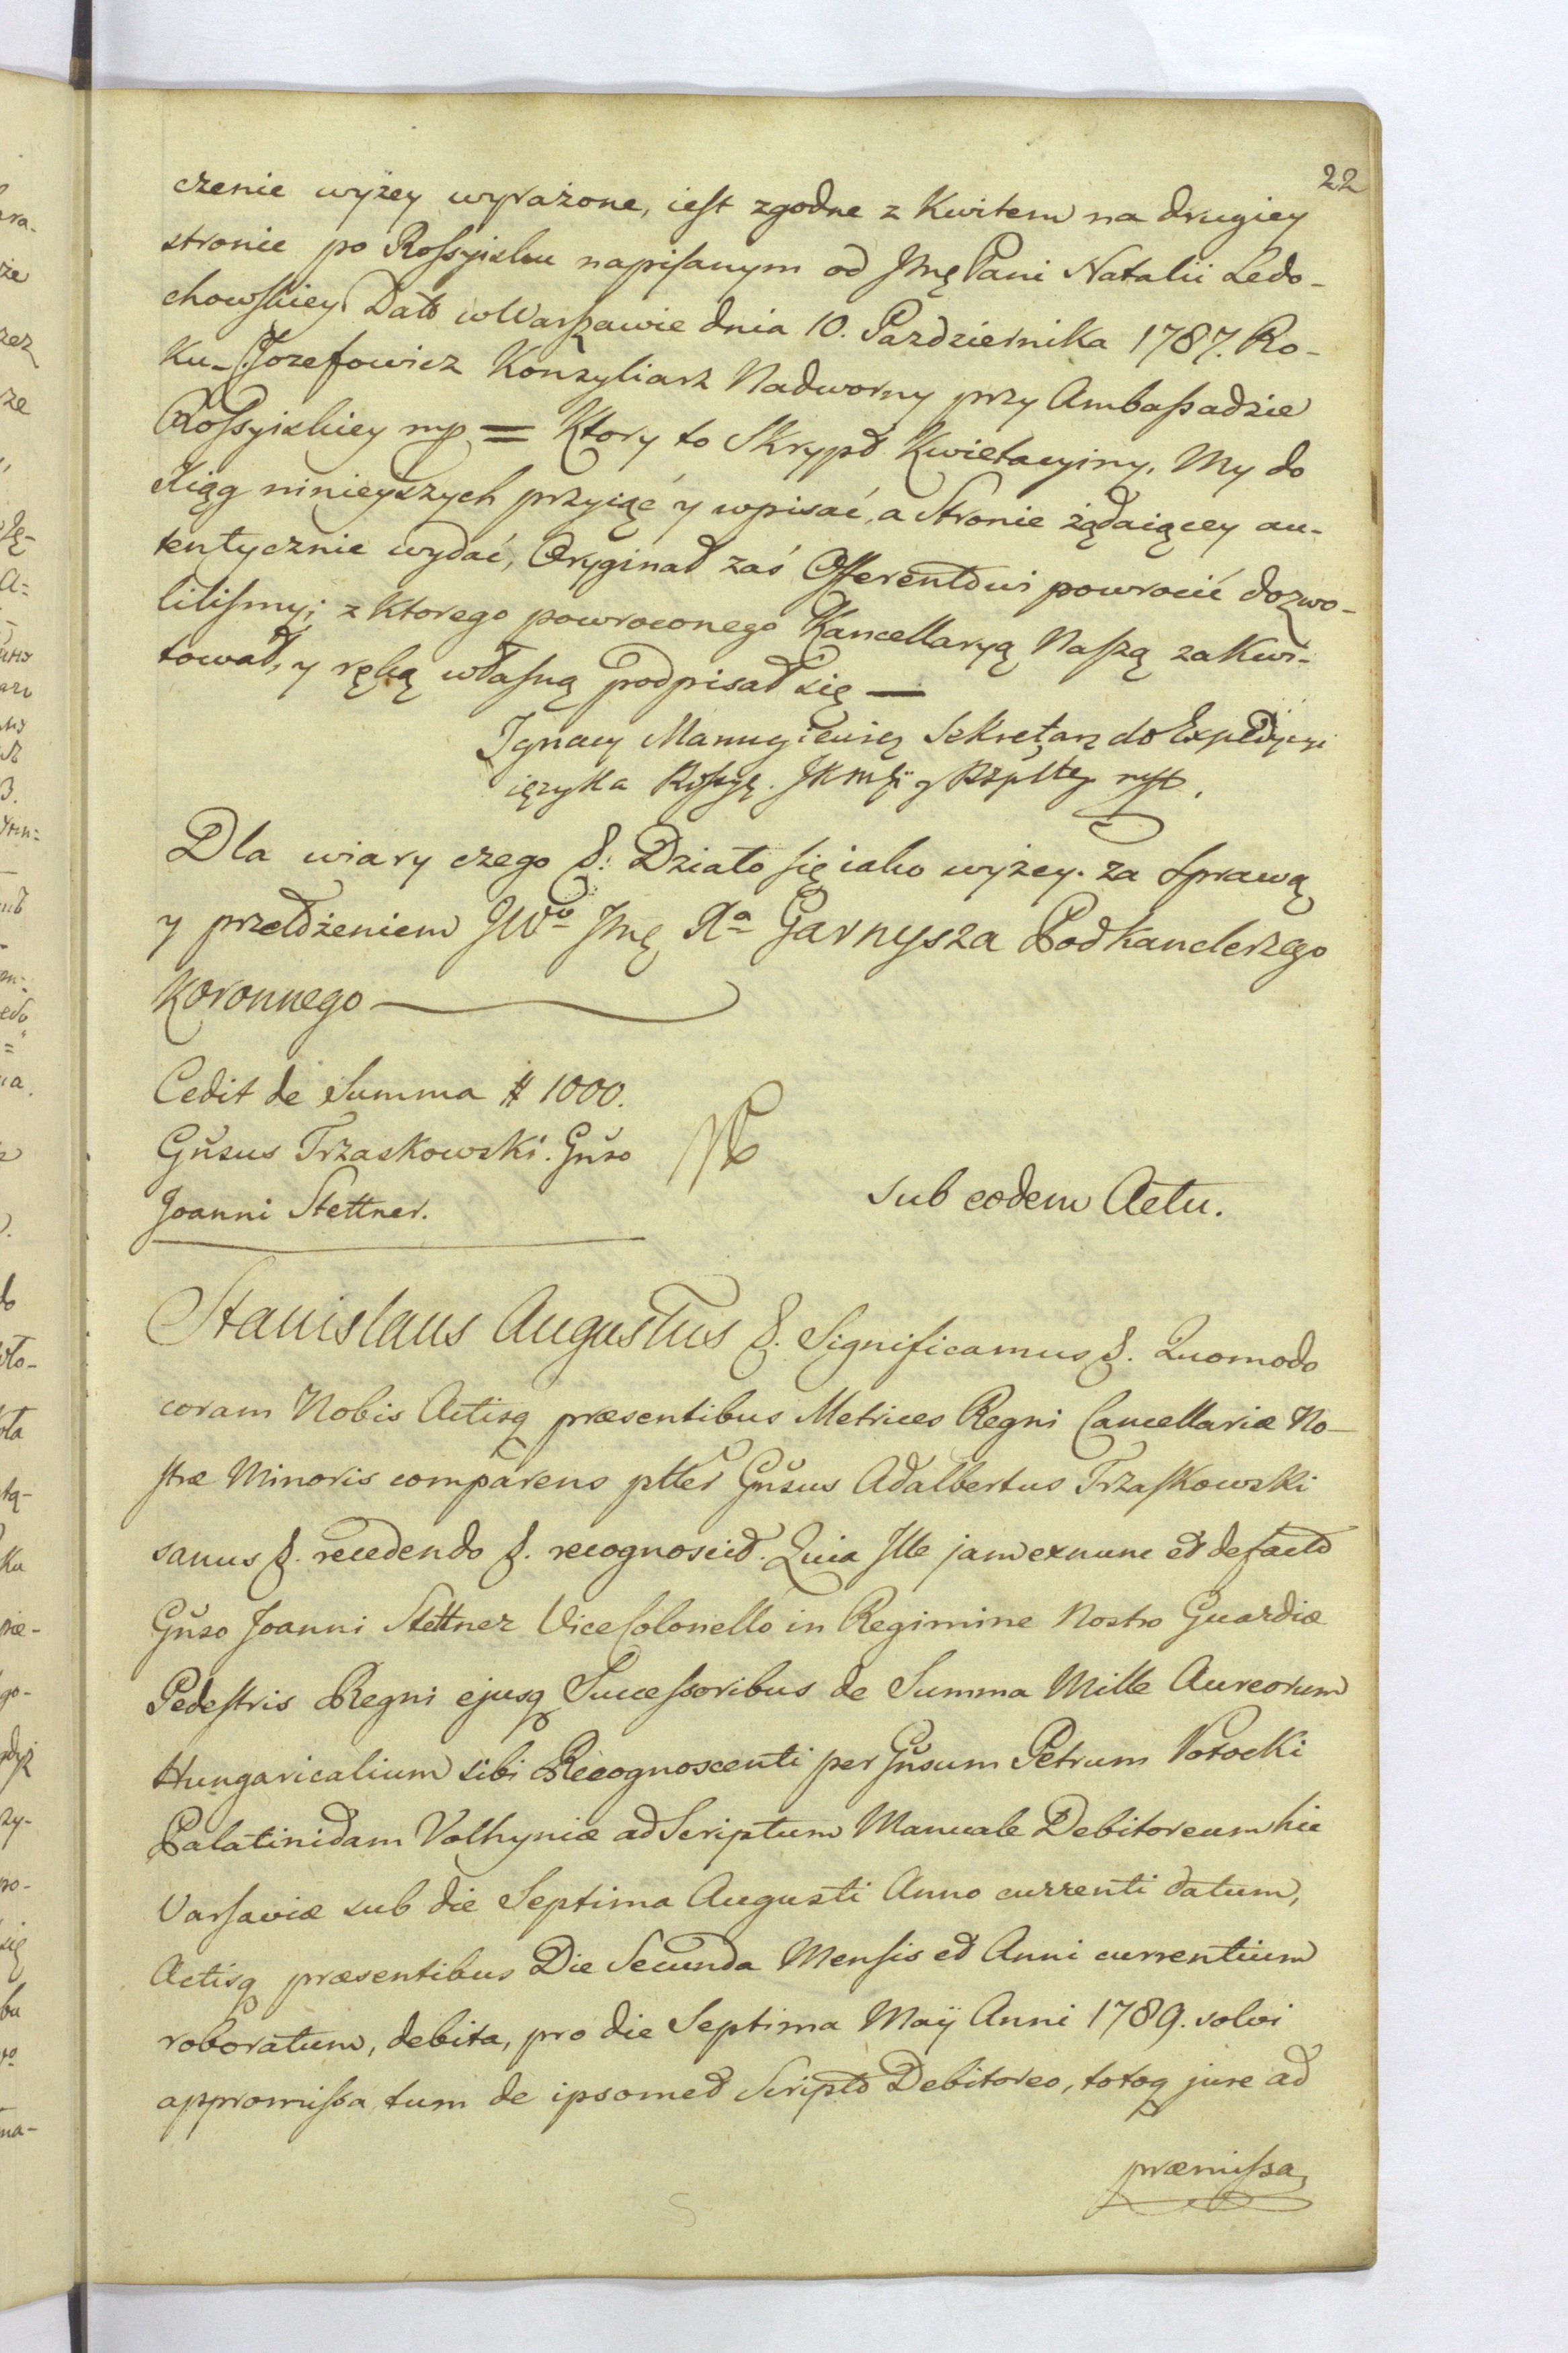 22
czenie wyżey wyrażone, iest zgodne z Kwitem na drugiey
stronie po Rossyisku napisanym od Jmę Pani Natalii Ledo-
chowskiey Dato w Warszawie dnia 10. Pazdziernika 1787. Ro-
ku_ Jozefowicz Konsyliarz Nadworny przy Ambassadzie
Rossyiskiey mp = Ktory to Skrypt Kwietacyiny, My do
Xiąg ninieyszych przyiąć y wpisać, a Stronie żądaiącey au-
tentycznie wydać, Oryginał zaś Offerentowi powrocić dozwo-
lilismy; z ktorego powroconego Kancellaryą Naszą zakwi-
tował, y ręką własną podpisał się —
Ignacy Manugiewicz Sekretarz do Expedycyi
ięzyka Rossyę. JKMści y Rzplitey mp.
Dla wiary czego &. Działo się iako wyżey. za sprawą
y przełożeniem JWo Jmę Xa Garnysza Podkanclerzego
Koronnego
Cedit de Summa # 1000.
Gnsus Trzaskowski. Gnso
Joanni Stettner.
sub eodem Actu.
Stanislaus Augustus &. Significamus &. Quomodo
coram Nobis Actisq præsentibus Metrices Regni Cancellariæ No-
stræ Minoris comparens ptter Gnsus Adalbertus Trzaskowski
sanus &. recedendo &. recognoscit. Quia Ille jam ex nunc et de facto
Gnso Joanni Stettner Vice Colonello in Regimine Nostro Guardiæ
Pedestris Regni ejusq Successoribus de Summa Mille Aureorum
Hungaricalium sibi Recognoscenti per Gnsum Petrum Potocki
Palatinidam Volhyniæ ad Scriptum Manuale Debitoreum hic
Varsaviæ sub die Septima Augusti Anno currenti datum,
Actisq præsentibus Die Secunda Mensis et Anni currentium
roboratum, debita, pro die Septima Maÿ Anni 1789. solvi
appromissa, tum de ipsomet Scripto Debitoreo, totoq jure ad
præmissa